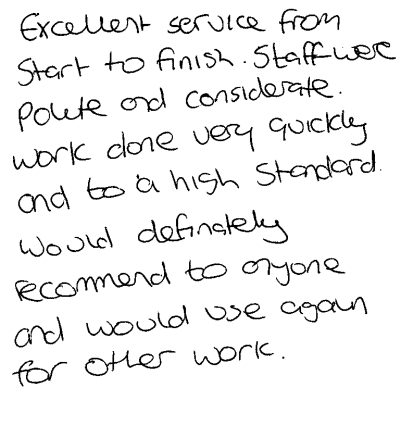 Excellent service from
Start to finish. Staff were
Polite and considerate.
work done very quickly
and to a high Standard.
Would definately
recommend to anyone
and would use again
for other work.